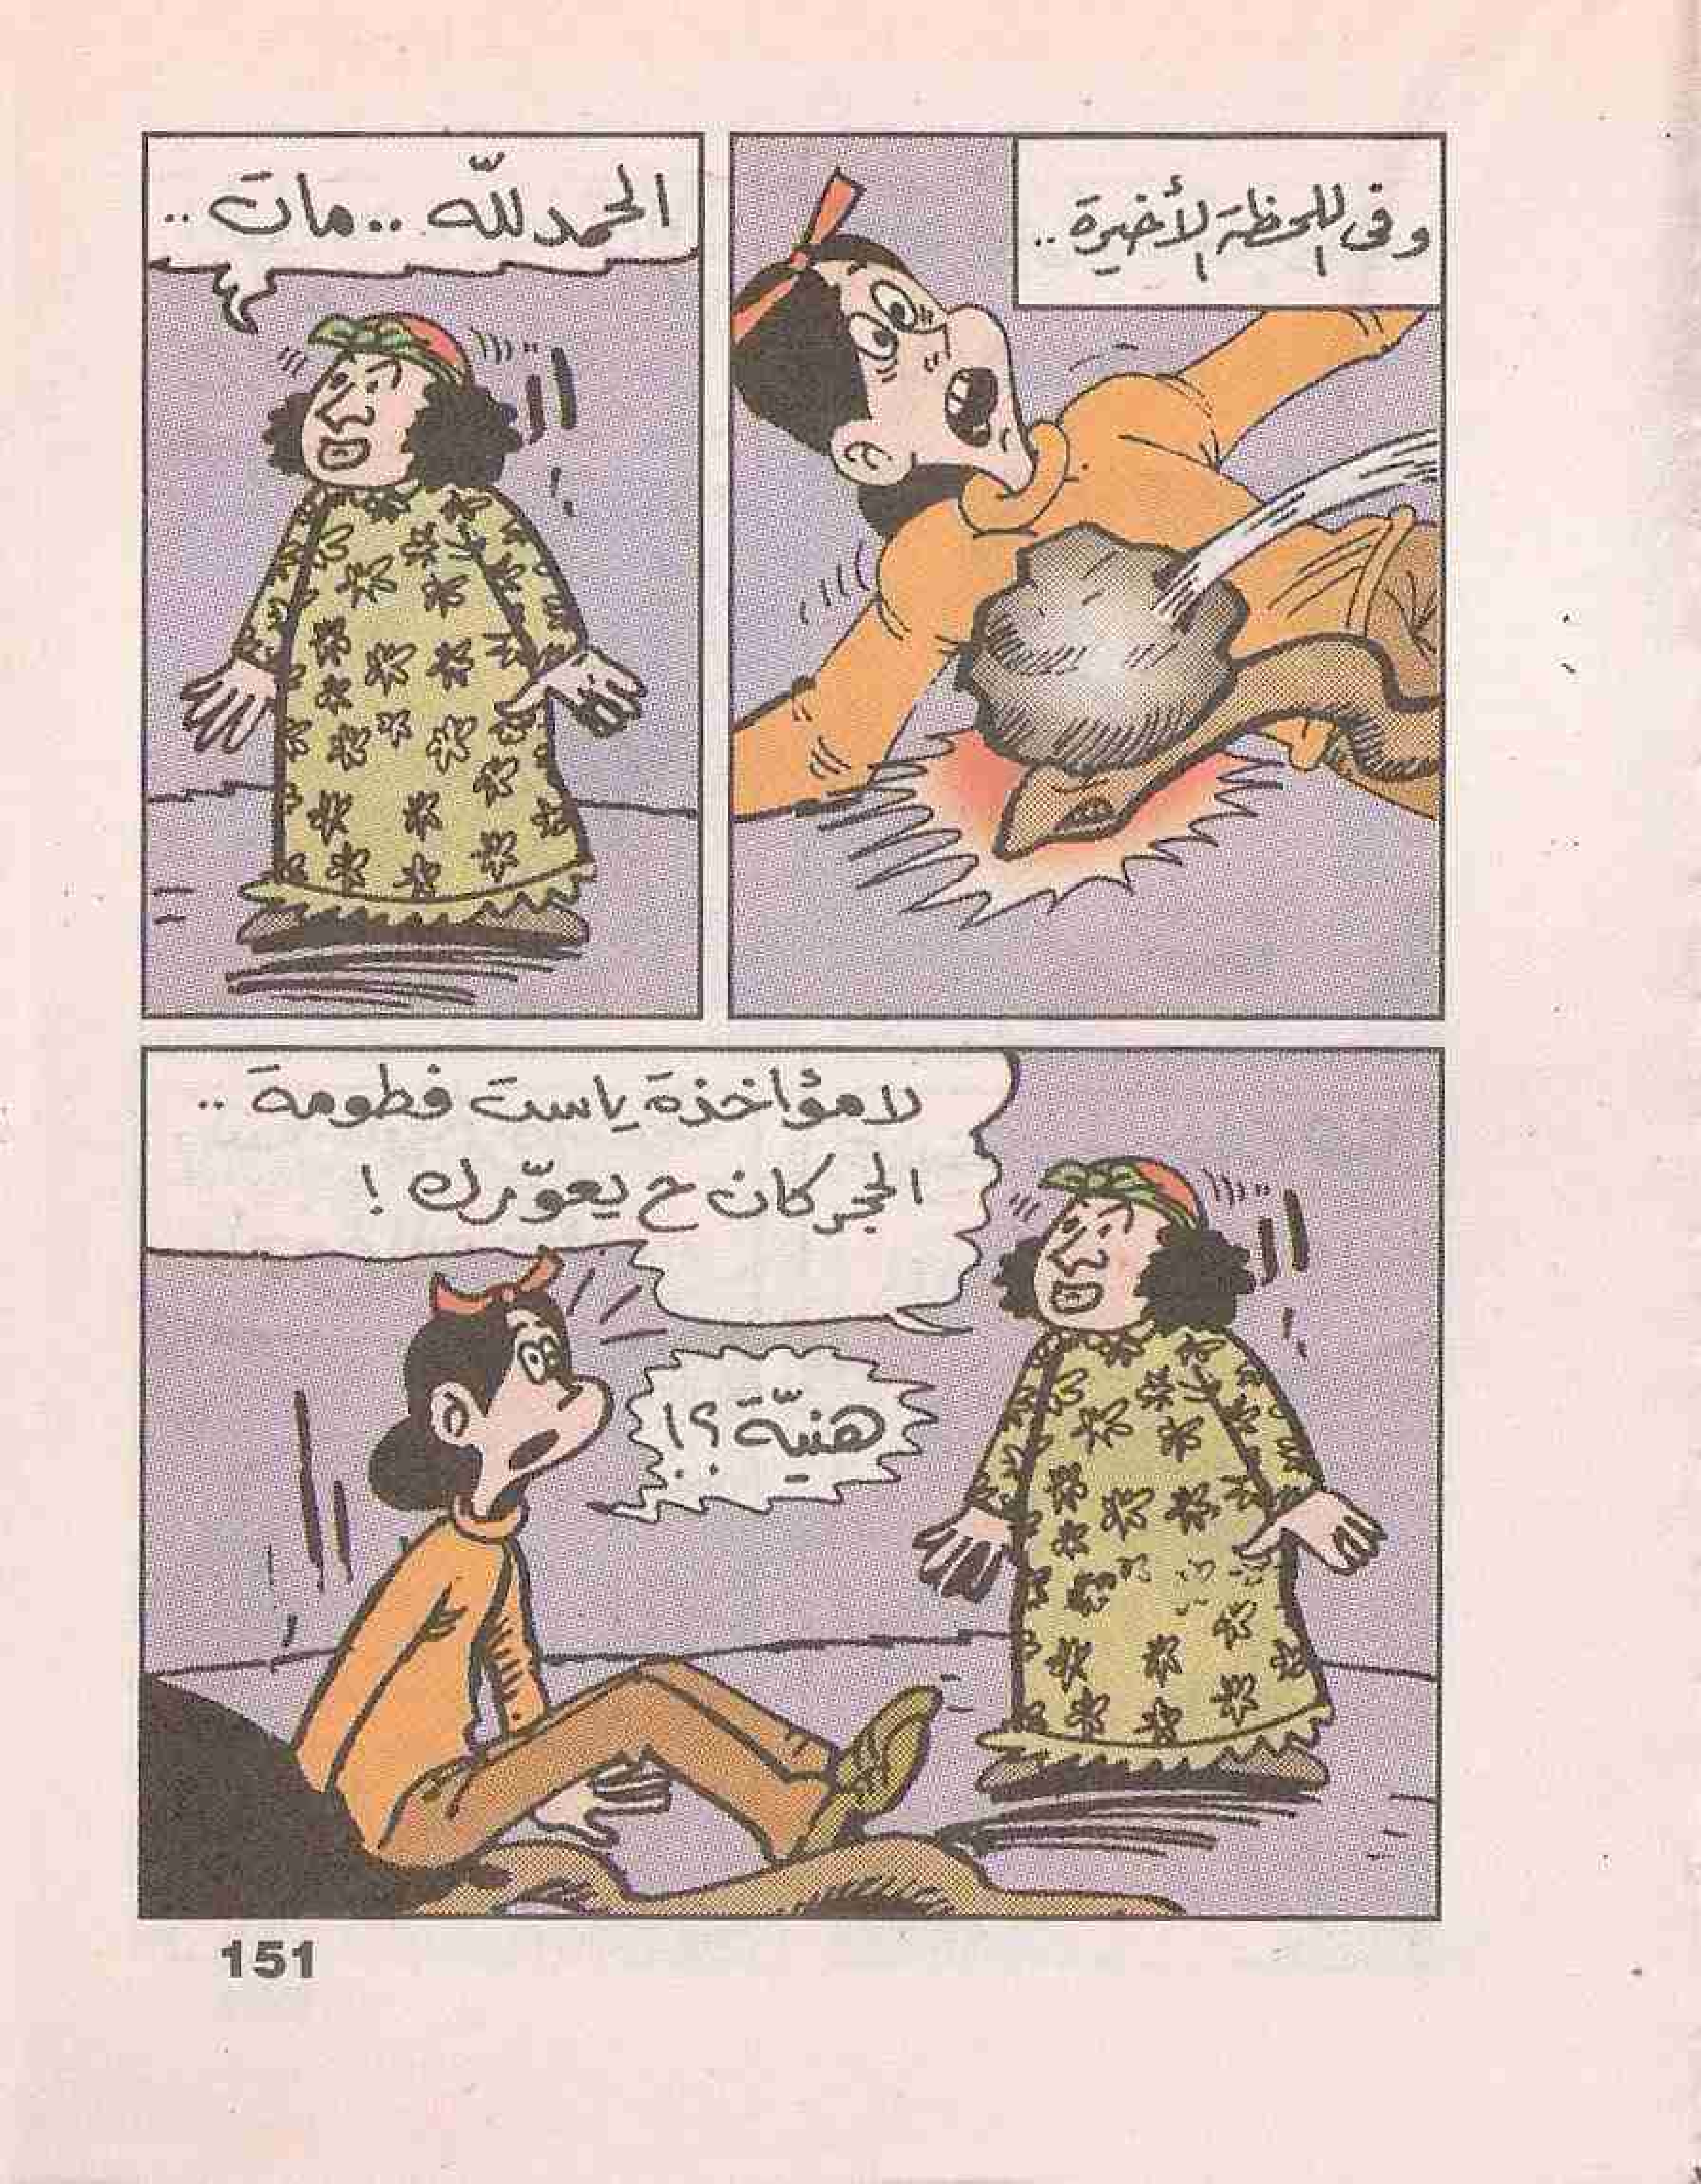 وفى اللحظة الأخيرة..
الحمدللّه..مات..
لامؤاخذة ياست فطومة..
الحجر كان ح يعوّرك!
هنيّة؟!
151